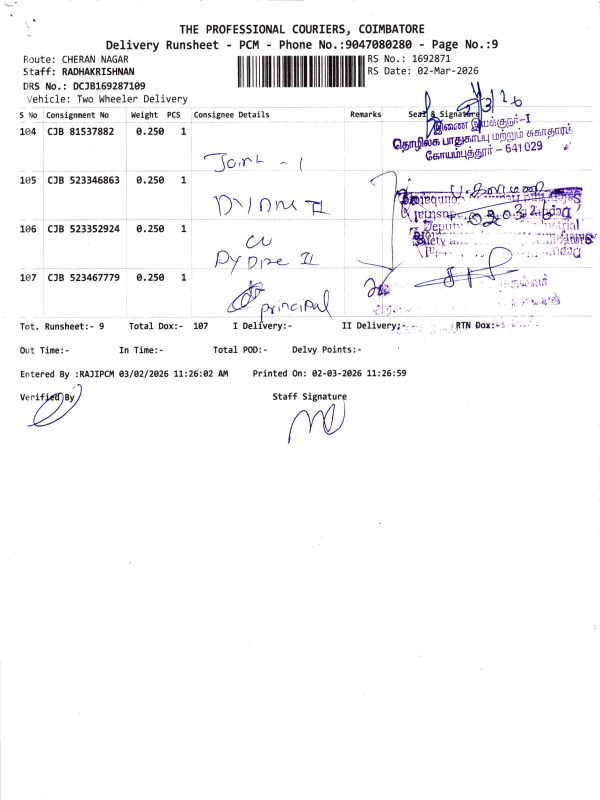 THE PROFESSIONAL COURIERS, COIMBATORE
Delivery Runsheet - PCM - Phone No.:9047080280 - Page No.:9
Route: CHERAN NAGAR
RS No.: 1692871
Staff: RADHAKRISHNAN
RS Date: 02-Mar-2026
DRS No.: DCJB169287109
Vehicle: Two Wheeler Delivery
S No Consignment No Weight PCS Consignee Details Remarks Seal & Signature
104 CJB 81537882 0.250 1
Joint - I
இணை இயக்குநர்-I
தொழிலக பாதுகாப்பு மற்றும் சுகாதாரம்
கோயம்புத்தூர் - 641 029
105 CJB 523346863 0.250 1
106 CJB 523352924 0.250 1
107 CJB 523467779 0.250 1
principal
Tot. Runsheet:- 9 Total Dox:- 107 I Delivery:- II Delivery:- RTN Dox:-
Out Time:- In Time:- Total POD:- Delvy Points:-
Entered By :RAJIPCM 03/02/2026 11:26:02 AM Printed On: 02-03-2026 11:26:59
Verified By Staff Signature